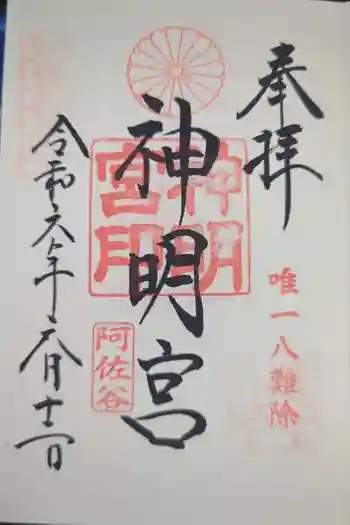 奉拝
唯一八難除
神明宮
神明
宮印
阿佐谷
令和六年六月十一日